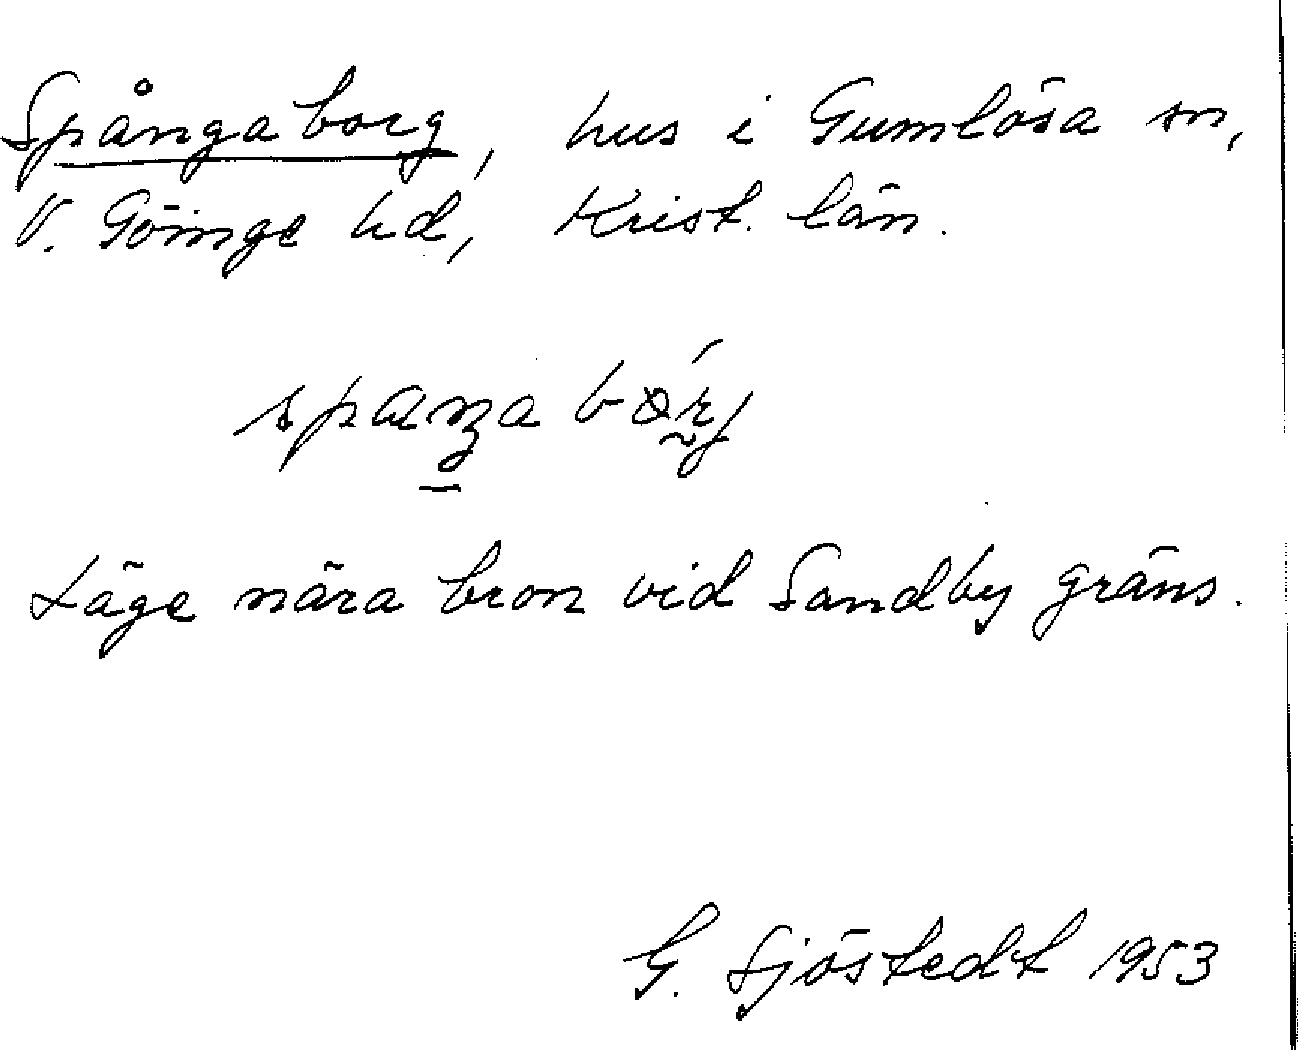 Spångaborg, hus i Gumlösa sn,
V. Göinge hd, Krist. län.
Läge nära bron vid Sandby gräns.
G. Sjöstedt 1953